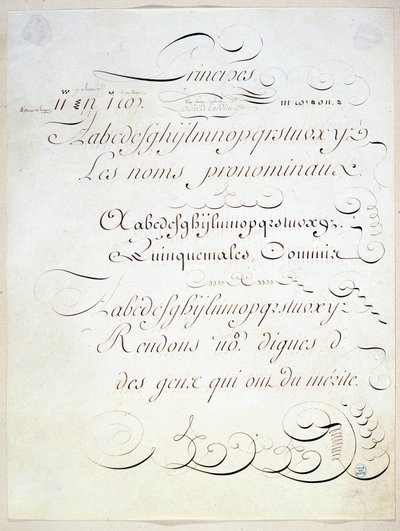 Principes
Aabcdefghijlmnopqrstuvxyz
Les noms pronominaux
Aabcdefghijlmnopqrstuvxyz.
Quinquemales, Dommir
Aabcdefghijlmnopqrstuvxyz
Rendons no9. dignes d
des gens qui ont du mérite.